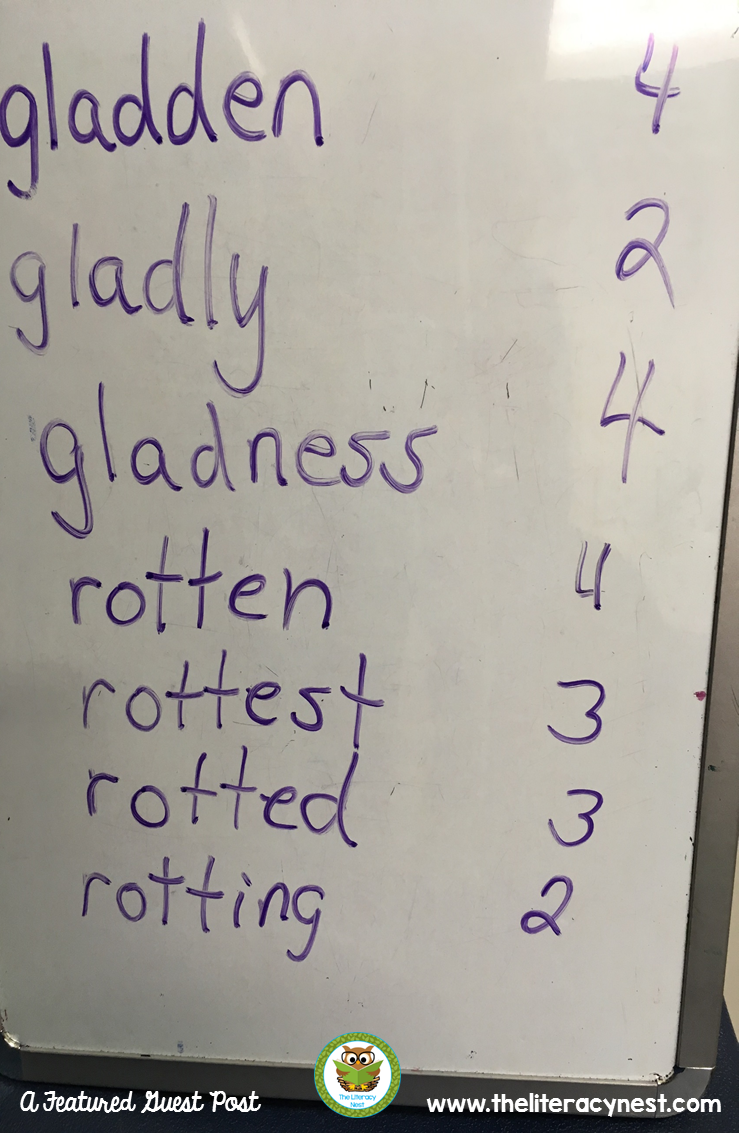 gladden 4
gladly 2
gladness 4
rotten 4
rottest 3
rotted 3
rotting 2
The Literacy
Nest
A Featured Guest Post www.theliteracynest.com